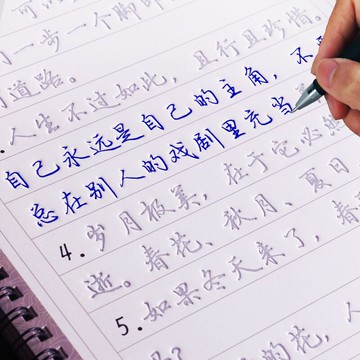 一步一个脚印
道路。
人生不过如此，且行且珍惜。
自己永远是自己的主角，不
总在别人的戏剧里充当
4. 岁月极美，在于它必然
逝。春花、秋月、夏日
5. 如果冬天来了，春
的花，人